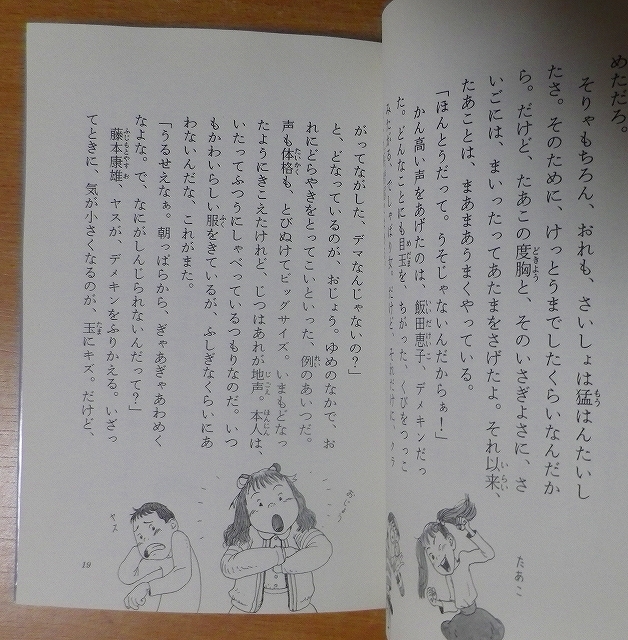 めただろ。
そりゃもちろん、おれも、さいしょは猛はんたいし
たさ。そのために、けっとうまでしたくらいなんだか
ら。だけど、たあこの度胸と、そのいさぎよさに、さ
いごには、まいったってあたまをさげたよ。それ以来、
たあことは、まあまあうまくやっている。
「ほんとうだって。うそじゃないんだからぁ！」
かん高い声をあげたのは、飯田恵子、デメキンだっ
た。どんなことにも目玉を、ちがった、くびをつっこ
みたがる、でしゃばり女。だけど、それだけに、クラ
たあこ
がってながした、デマなんじゃないの？」
と、どなっているのが、おじょう。ゆめのなかで、お
れにどらやきをとってこいといった、例のあいつだ。
声も体格も、とびぬけてビッグサイズ。いまもどなっ
たようにきこえたけれど、じつはあれが地声。本人は、
いたってふつうにしゃべっているつもりなのだ。いつ
もかわいらしい服をきているが、ふしぎなくらいにあ
わないんだな、これがまた。
「うるせえなぁ。朝っぱらから、ぎゃあぎゃあわめく
なよな。で、なにがしんじられないんだって？」
藤本康雄、ヤスが、デメキンをふりかえる。いざっ
てときに、気が小さくなるのが、玉にキズ。だけど、
おじょう
ヤス
19